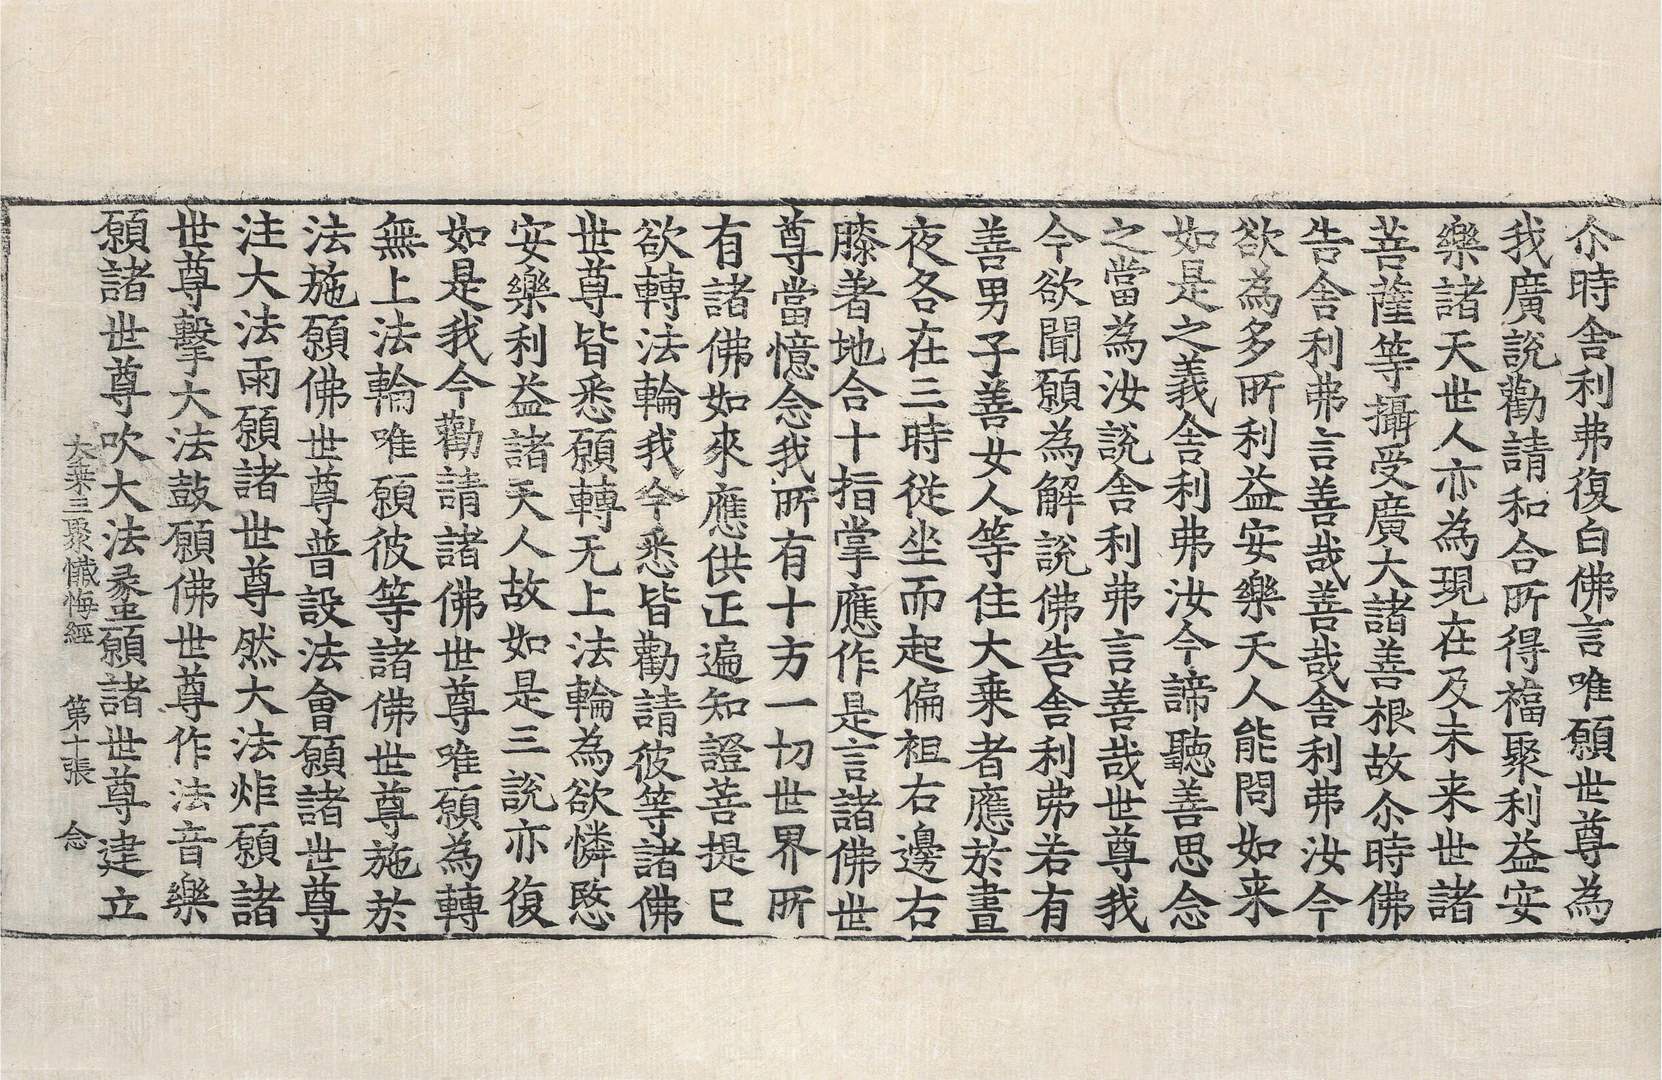 尒時舍利弗復白佛言唯願世尊為
我廣說勸請和合所得福聚利益安
樂諸天世人亦為現在及未来世諸
菩薩等攝受廣大諸善根故尒時佛
告舍利弗言善哉善哉舍利弗汝今
欲為多所利益安樂天人能問如来
如是之義舍利弗汝今諦聽善思念
之當為汝說舍利弗言善哉世尊我
今欲聞願為解說佛告舍利弗若有
善男子善女人等住大乘者應於晝
夜各在三時從坐而起偏袒右邊右
膝著地合十指掌應作是言諸佛世
尊當憶念我所有十方一切世界所
有諸佛如來應供正遍知證菩提已
欲轉法輪我今悉皆勸請彼等諸佛
世尊皆悉願轉无上法輪為欲憐愍
安樂利益諸天人故如是三說亦復
如是我今勸請諸佛世尊唯願為轉
無上法輪唯願彼等諸佛世尊施於
法施願佛世尊普設法會願諸世尊
注大法雨願諸世尊然大法炬願諸
世尊擊大法鼓願佛世尊作法音樂
願諸世尊吹大法蠡願諸世尊建立
大乘三聚懺悔經 第十張 念